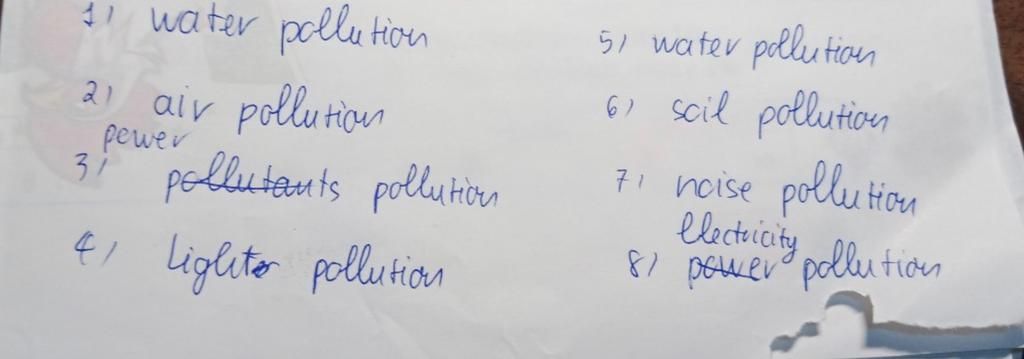 1) water pollution
2) air pollution
power
3) pollutants pollution
4) Light pollution
5) water pollution
6) soil pollution
7) noise pollution
Electricity
8) power pollution